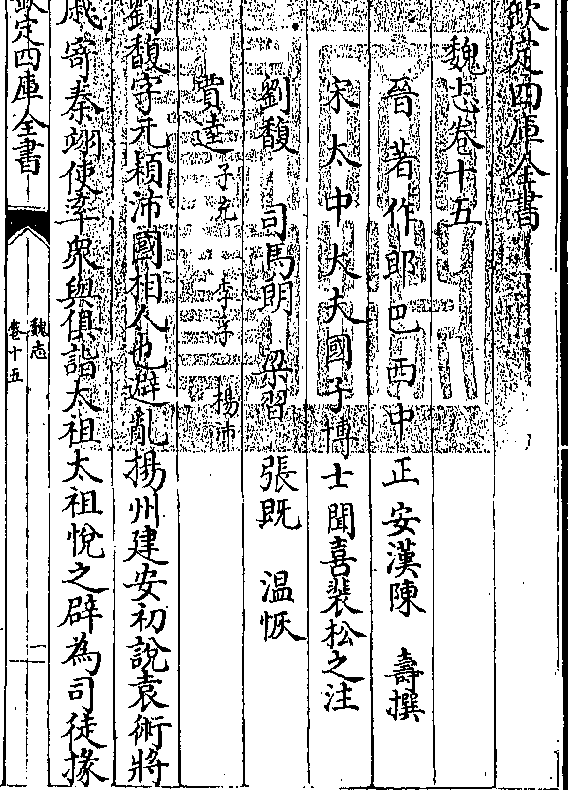 欽定四庫全書
魏志卷十五
晉著作郎巴西中正安漢陳壽撰
宋太中大夫國子博士聞喜裴松之注
劉馥 司馬朗 梁習 張既 温恢
賈逵 子充 李孚 楊沛
劉馥字元頴沛國相人也避亂揚州建安初說袁術將
戚寄秦翊使率衆與俱詣太祖太祖悅之辟為司徒掾
欽定四庫全書
魏志
卷十五
一